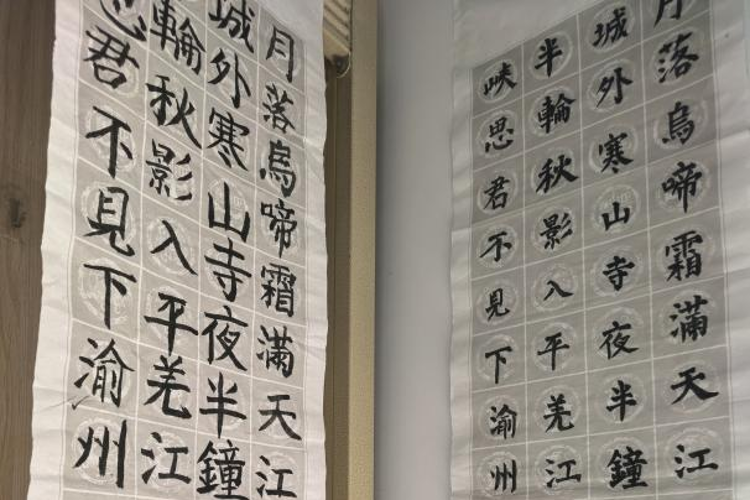 月落烏啼霜滿天江
城外寒山寺夜半鐘
輪秋影入平羌江
思君不見下渝州
月落烏啼霜滿天江
城外寒山寺夜半鐘
半輪秋影入平羌江
峽思君不見下渝州